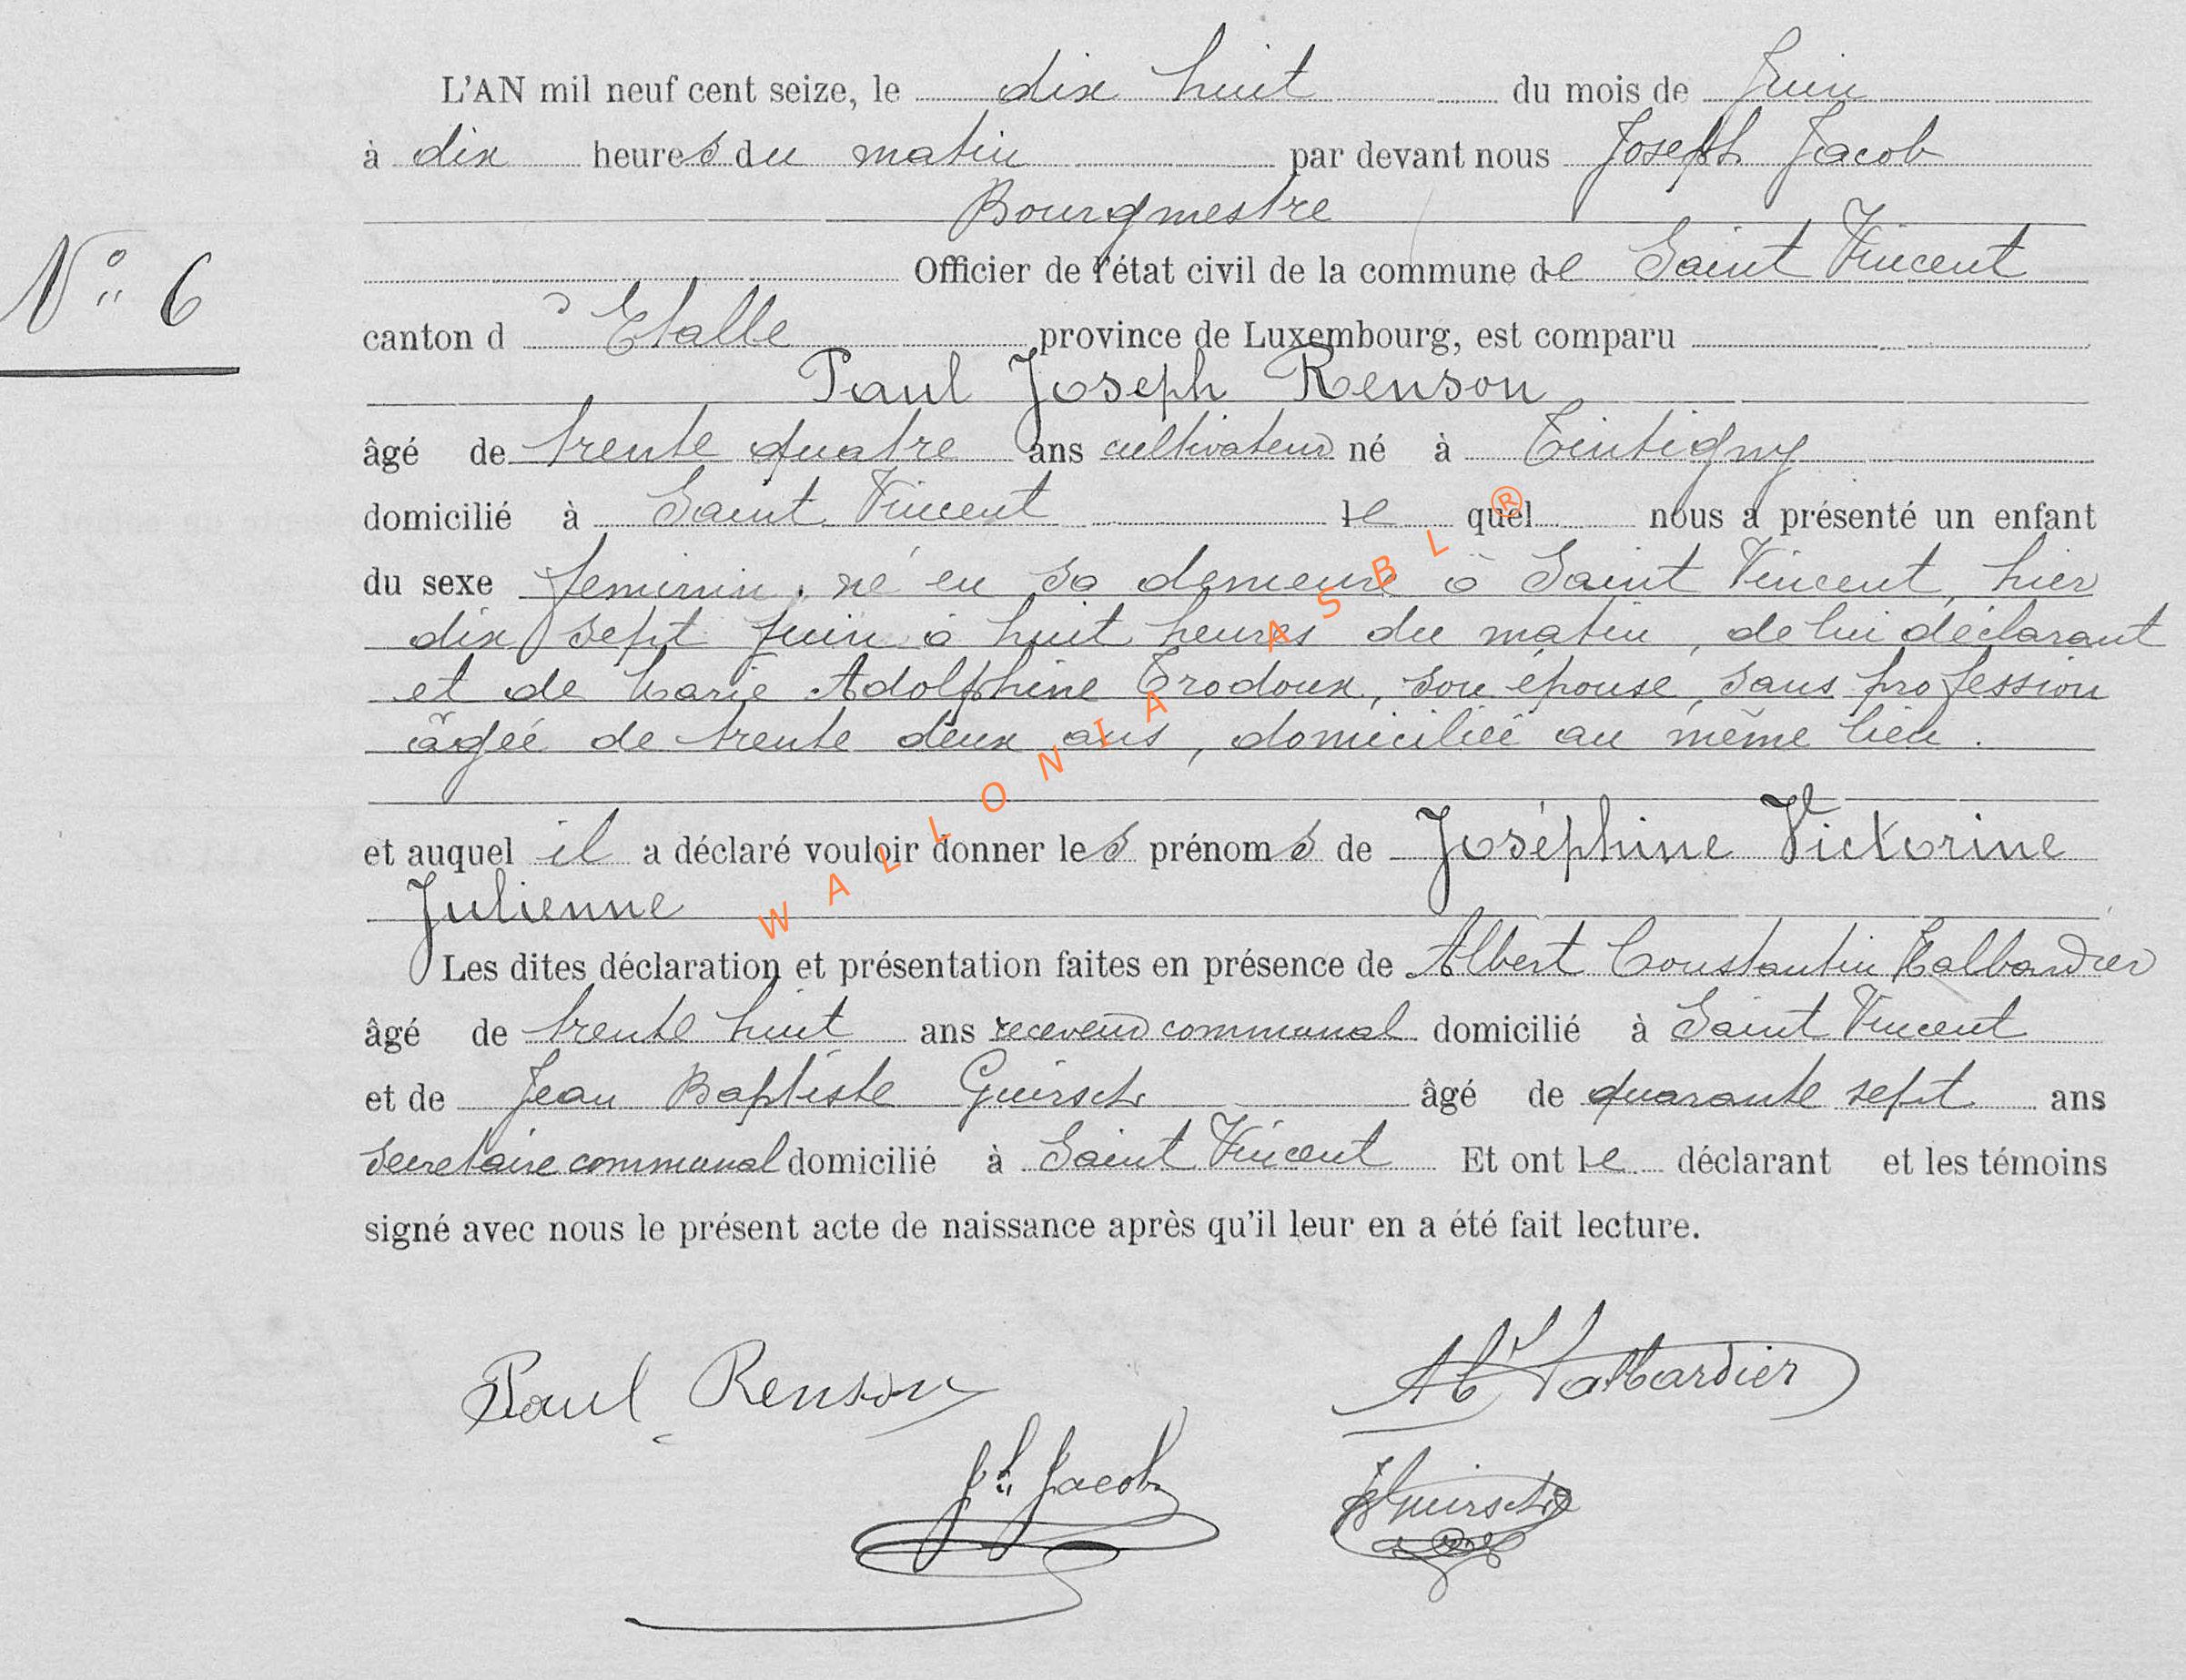 L'AN mil neuf cent seize, le dix huit du mois de Juin
à dix heures du matin par devant nous Joseph Jacob
Bourgmestre
N° 6
Officier de l'état civil de la commune de Saint Vincent
canton d'Etalle province de Luxembourg, est comparu
Paul Joseph Renson
âgé de trente quatre ans cultivateur né à Tintigny
domicilié à Saint Vincent le quel nous a présenté un enfant
du sexe feminin, né en sa demeure à Saint Vincent, hier
dix sept Juin à huit heures du matin, de lui déclarant
et de Marie Adolphine Trodoux, son épouse, sans profession
âgée de trente deux ans, domiciliée au même lieu.
et auquel il a déclaré vouloir donner les prénoms de Joséphine Victorine
Julienne
Les dites déclaration et présentation faites en présence de Albert Constantin Halbardier
âgé de trente huit ans receveur communal domicilié à Saint Vincent
et de Jean Baptiste Guirsch âgé de quarante sept ans
secretaire communal domicilié à Saint Vincent Et ont le déclarant et les témoins
signé avec nous le présent acte de naissance après qu'il leur en a été fait lecture.
Paul Renson
Halbardier
Jh Jacob
JBGuirsch
WALLONIA ASBL ®